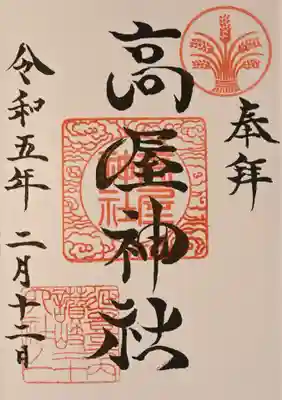 奉拝
高屋神社
令和五年 二月十二日